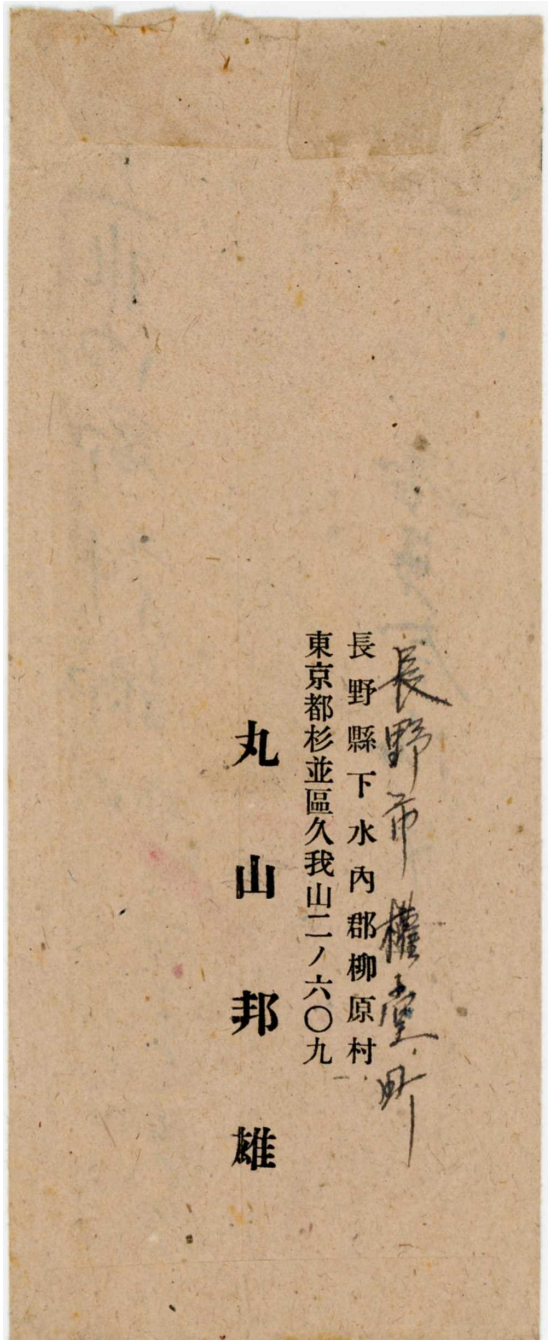 長野市權堂町
長野縣下水內郡柳原村
東京都杉並區久我山二ノ六〇九
丸山邦雄